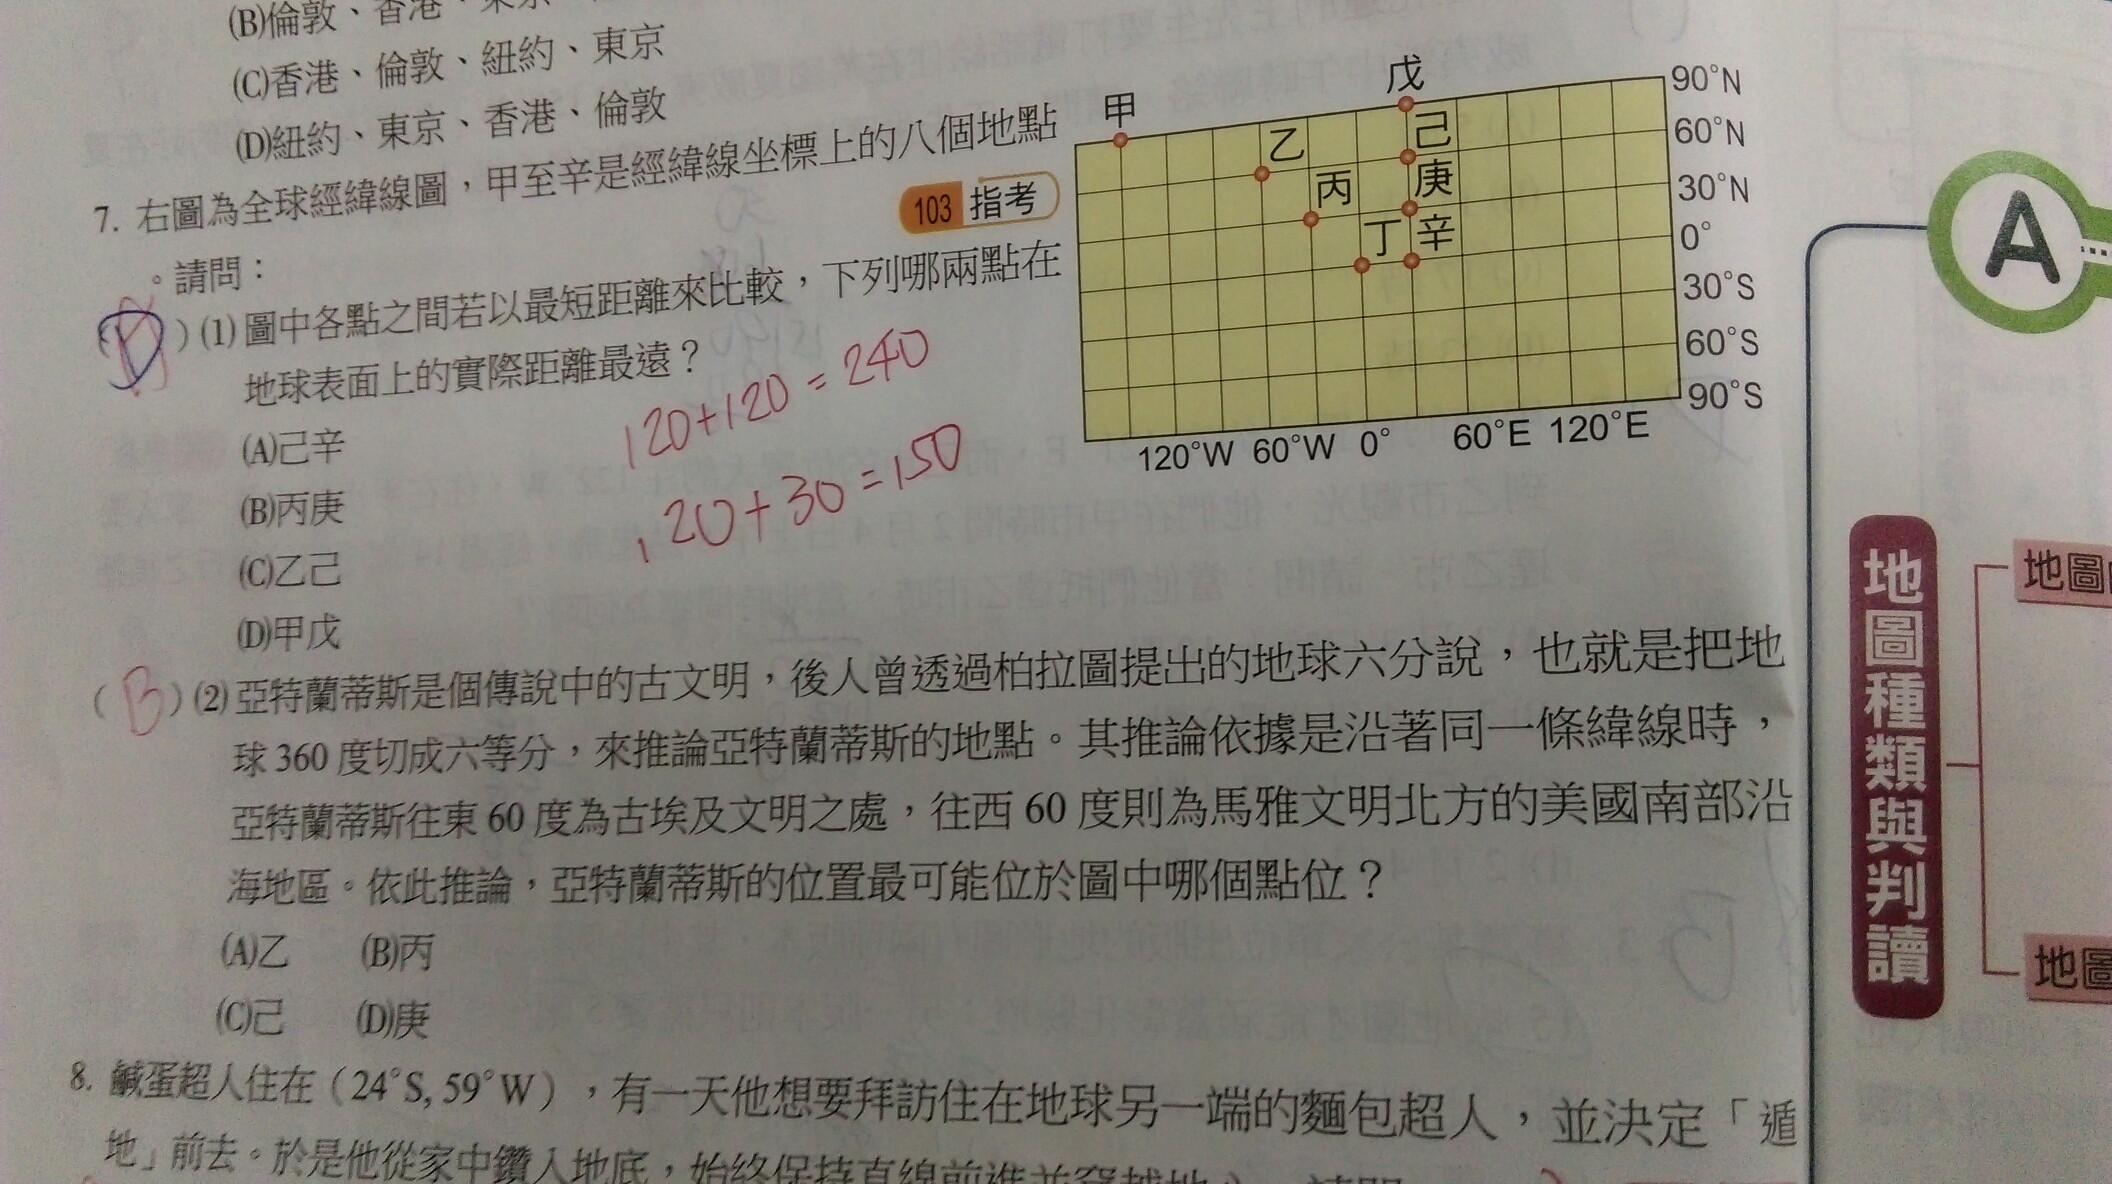 (B)倫敦、香港、東京、
(C)香港、倫敦、紐約、東京
(D)紐約、東京、香港、倫敦
7. 右圖為全球經緯線圖，甲至辛是經緯線坐標上的八個地點
。請問：
103 指考
(D)(1) 圖中各點之間若以最短距離來比較，下列哪兩點在
地球表面上的實際距離最遠？
120+120=240
120+30=150
(A)己辛
(B)丙庚
(C)乙己
(D)甲戊
甲
乙
丙
丁
戊
己
庚
辛
90°N
60°N
30°N
0°
30°S
60°S
90°S
120°W 60°W 0° 60°E 120°E
(B)(2) 亞特蘭蒂斯是個傳說中的古文明，後人曾透過柏拉圖提出的地球六分說，也就是把地
球 360 度切成六等分，來推論亞特蘭蒂斯的地點。其推論依據是沿著同一條緯線時，
亞特蘭蒂斯往東 60 度為古埃及文明之處，往西 60 度則為馬雅文明北方的美國南部沿
海地區。依此推論，亞特蘭蒂斯的位置最可能位於圖中哪個點位？
(A)乙 (B)丙
(C)己 (D)庚
8. 鹹蛋超人住在（24°S, 59°W），有一天他想要拜訪住在地球另一端的麵包超人，並決定「遁
地」前去。於是他從家中鑽入地底，始終保持直線前進並穿越地心
A
地圖種類與判讀
地圖
地圖